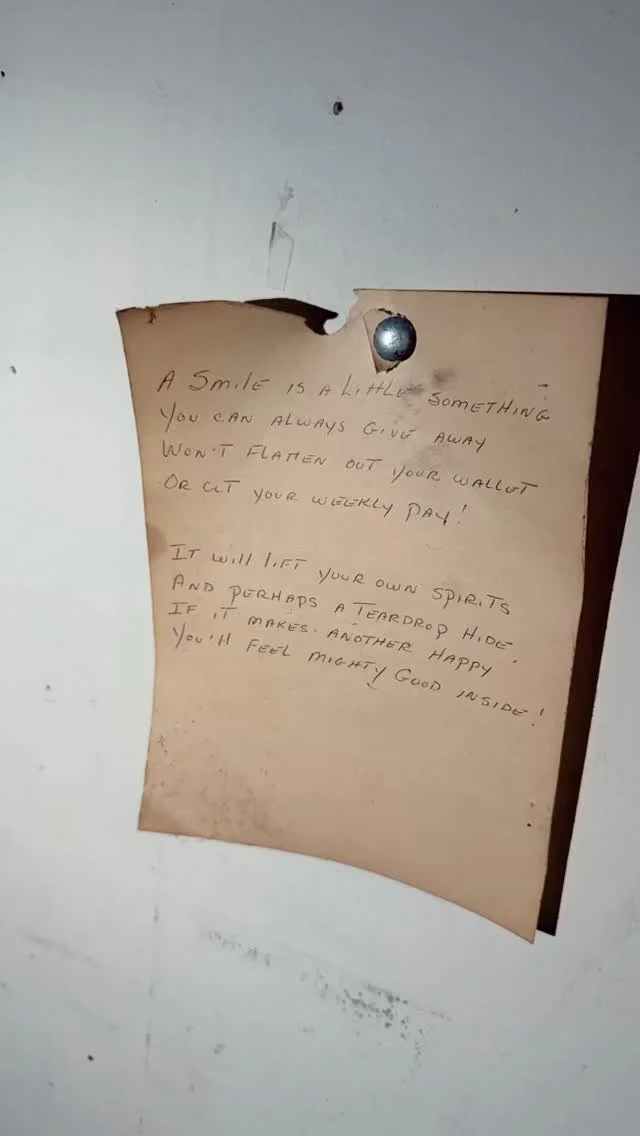 A SMILE IS A LITTLE SOMETHING
YOU CAN ALWAYS GIVE AWAY
WON'T FLATTEN OUT YOUR WALLET
OR CUT YOUR WEEKLY PAY!
IT WILL LIFT YOUR OWN SPIRITS
AND PERHAPS A TEARDROP HIDE.
IF IT MAKES ANOTHER HAPPY
YOU'LL FEEL MIGHTY GOOD INSIDE!